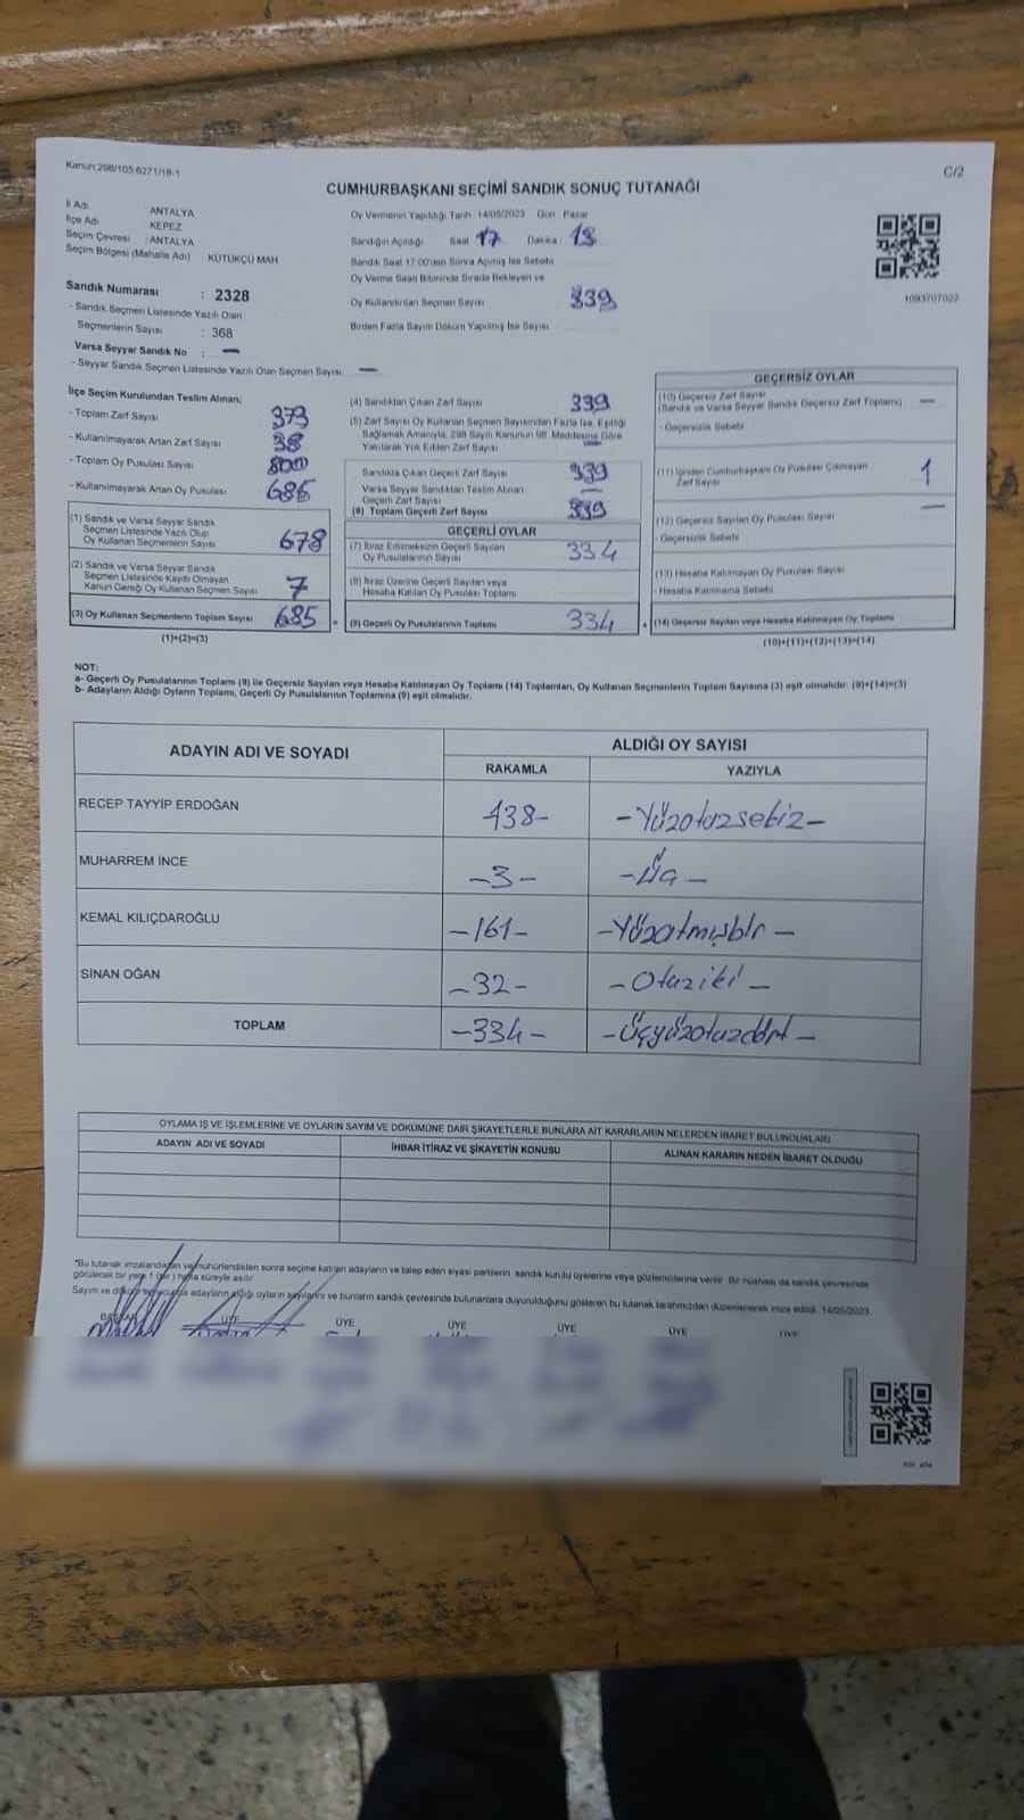 Kanun:298/105.6271/18-1
C/2
CUMHURBAŞKANI SEÇİMİ SANDIK SONUÇ TUTANAĞI
İl Adı : ANTALYA
İlçe Adı : KEPEZ
Seçim Çevresi : ANTALYA
Seçim Bölgesi (Mahalle Adı) : KÜTÜKÇÜ MAH
Sandık Numarası : 2328
- Sandık Seçmen Listesinde Yazılı Olan
Seçmenlerin Sayısı : 368
Varsa Seyyar Sandık No : —
- Seyyar Sandık Seçmen Listesinde Yazılı Olan Seçmen Sayısı —
Oy Vermenin Yapıldığı Tarih : 14/05/2023 Gün : Pazar
Sandığın Açıldığı Saat 17 Dakika :
Sandık Saat 17:00'den Sonra Açılmış İse Sebebi
Oy Verme Saati Bitiminde Sırada Bekleyen ve
Oy Kullandırılan Seçmen Sayısı 339
Birden Fazla Sayım Döküm Yapılmış İse Sayısı
1093707022
İlçe Seçim Kurulundan Teslim Alınan;
- Toplam Zarf Sayısı 373
- Kullanılmayarak Artan Zarf Sayısı 38
- Toplam Oy Pusulası Sayısı 800
- Kullanılmayarak Artan Oy Pusulası
(1) Sandık ve Varsa Seyyar Sandık
Seçmen Listesinde Yazılı Olup
Oy Kullanan Seçmenlerin Sayısı 678
(2) Sandık ve Varsa Seyyar Sandık
Seçmen Listesinde Kayıtlı Olmayan
Kanun Gereği Oy Kullanan Seçmen Sayısı 7
(3) Oy Kullanan Seçmenlerin Toplam Sayısı 685
(1)+(2)=(3)
(4) Sandıktan Çıkan Zarf Sayısı 339
(5) Zarf Sayısı Oy Kullanan Seçmen Sayısından Fazla İse, Eşitliği
Sağlamak Amacıyla, 298 Sayılı Kanunun 98. Maddesine Göre
Yakılarak Yok Edilen Zarf Sayısı —
Sandıkta Çıkan Geçerli Zarf Sayısı 339
Varsa Seyyar Sandıktan Teslim Alınan
Geçerli Zarf Sayısı —
(6) Toplam Geçerli Zarf Sayısı 339
GEÇERLİ OYLAR
(7) İtiraz Edilmeksizin Geçerli Sayılan
Oy Pusulalarının Sayısı 334
(8) İtiraz Üzerine Geçerli Sayılan veya
Hesaba Katılan Oy Pusulası Toplamı
(9) Geçerli Oy Pusulalarının Toplamı 334
GEÇERSİZ OYLAR
(10) Geçersiz Zarf Sayısı
(Sandık ve Varsa Seyyar Sandık Geçersiz Zarf Toplamı) —
- Geçersizlik Sebebi
(11) İçinden Cumhurbaşkanı Oy Pusulası Çıkmayan
Zarf Sayısı 1
(12) Geçersiz Sayılan Oy Pusulası Sayısı —
- Geçersizlik Sebebi
(13) Hesaba Katılmayan Oy Pusulası Sayısı
- Hesaba Katılmama Sebebi
(14) Geçersiz Sayılan veya Hesaba Katılmayan Oy Toplamı
(10)+(11)+(12)+(13)=(14)
NOT:
a- Geçerli Oy Pusulalarının Toplamı (9) ile Geçersiz Sayılan veya Hesaba Katılmayan Oy Toplamı (14) Toplamları, Oy Kullanan Seçmenlerin Toplam Sayısına (3) eşit olmalıdır. (9)+(14)=(3)
b- Adayların Aldığı Oyların Toplamı, Geçerli Oy Pusulalarının Toplamına (9) eşit olmalıdır.
ADAYIN ADI VE SOYADI
ALDIĞI OY SAYISI
RAKAMLA YAZIYLA
RECEP TAYYİP ERDOĞAN 138- -Yüzotuzsekiz-
MUHARREM İNCE -3- -Üç-
KEMAL KILIÇDAROĞLU -161- -Yüzatmışbir-
SİNAN OĞAN -32- -Otuziki-
TOPLAM -334- -Üçyüzotuzdört-
OYLAMA İŞ VE İŞLEMLERİNE VE OYLARIN SAYIM VE DÖKÜMÜNE DAİR ŞİKAYETLERLE BUNLARA AİT KARARLARIN NELERDEN İBARET BULUNDUKLARI
ADAYIN ADI VE SOYADI İHBAR İTİRAZ VE ŞİKAYETİN KONUSU ALINAN KARARIN NEDEN İBARET OLDUĞU
"Bu tutanak imzalandıktan ve mühürlendikten sonra seçime katılan adayların ve talep eden siyasi partilerin sandık kurulu üyelerine veya gözlemcilerine verilir. Bir nüshası da sandık çevresinde
görülecek bir yere 1 (bir) hafta süreyle asılır.
Sayım ve döküm sonucunda adayların aldığı oyların sayılarını ve bunların sandık çevresinde bulunanlara duyurulduğunu gösteren bu tutanak tarafımızdan düzenlenerek imza edildi. 14/05/2023
BAŞKAN ÜYE ÜYE ÜYE ÜYE ÜYE ÜYE